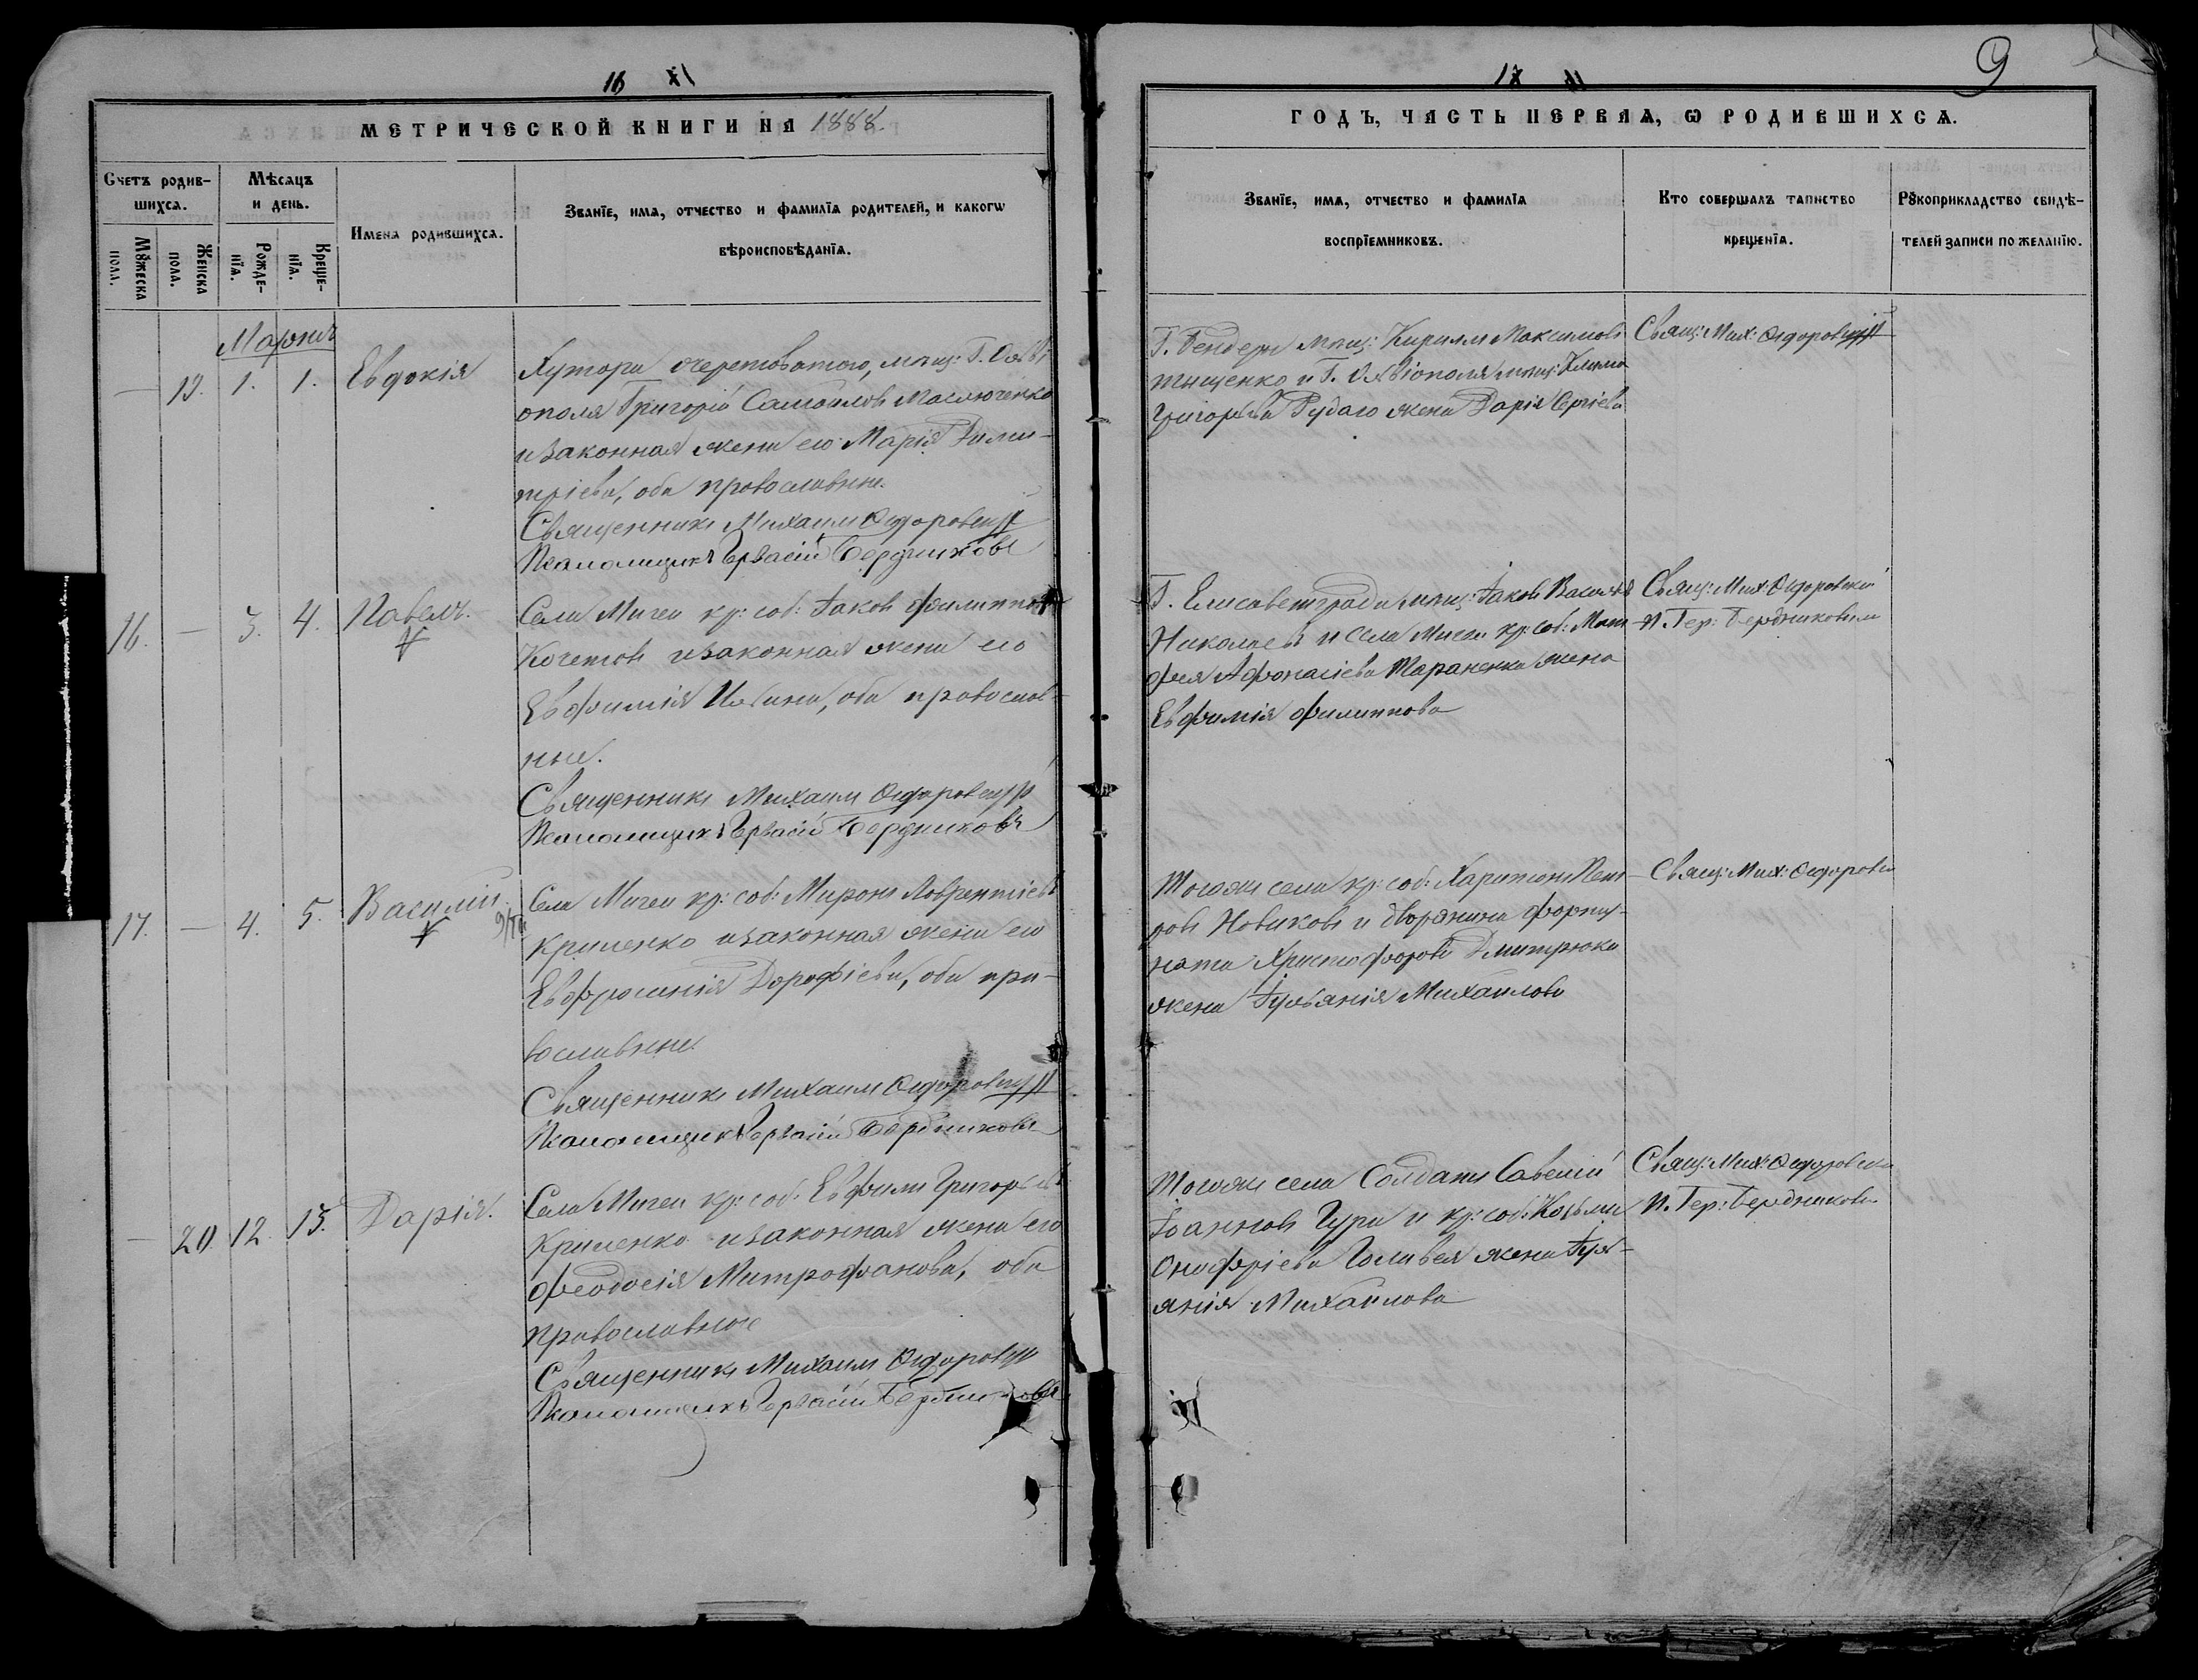 16 XI
МЕТРИЧЕСКОЙ КНИГИ НА 1888.
Счетъ родив-
шихся.
Мѣсяцъ
и день.
Имена родившихся.
Званїе, имя, отчество и фамилїя родителей, и какогѡ
вѣроисповѣданїя.
Мꙋжеска
пола.
Женска
пола.
Рожде-
нїя.
Креще-
нїя.
Мартъ
— 19. 1. 1. Евдокія
Хутора Очеретоватого, мѣщ: Г. Ольві-
ополя Григорій Самойловъ Маслюченко
и законная жена его Марія Дими-
тріева, оба православные.
Священникъ Михаилъ Ѳедоровскій
Псаломщикъ Гервасій Бердниковъ
16. — 3. 4. Павелъ.
Села Мигеи кр: соб: Іаковъ Филиппов
Кочетовъ и законная жена его
Евфимія Ильина, оба православ-
ные.
Священникъ Михаилъ Ѳедоровскій
Псаломщикъ Гервасій Бердниковъ
17. — 4. 5. Василій.
Села Мигеи кр: соб: Миронъ Лаврентіевъ
Криленко и законная жена его
Евфросинія Дорофіева, оба пра-
вославные.
Священникъ Михаилъ Ѳедоровскій
Псаломщикъ Гервасій Бердниковъ
— 20. 12. 13. Дарія.
Села Мигеи кр: соб: Евфимъ Григорьевъ
Криленко и законная жена его
Феодосія Митрофанова, оба
православные
Священникъ Михаилъ Ѳедоровскій
Псаломщикъ Гервасій Бердниковъ
17
9
ГОДЪ, ЧАСТЬ ПЕРВАЯ, Ѡ РОДИВШИХСЯ.
Званїе, имя, отчество и фамилїя
воспрїемниковъ.
Кто совершалъ таинство
крещенїя.
Рꙋкоприкладство свидѣ-
телей записи по желанїю.
Г. Бендеръ мѣщ: Кириллъ Максимовъ
Тищенко и Г. Ольвіополя мѣщ: Климa
Григорьева Рудаго жена Дарія Сергіева
Свящ: Мих: Ѳедоровскій
Г. Елисаветграда мѣщ: Іаковъ Васильевъ
Николаевъ и села Мигеи кр: соб: Мат-
фея Афонасіева Тараненка жена
Евфимія Филиппова
Свящ: Мих: Ѳедоровскій
П. Гер: Бердниковъ
Тогожъ села кр: соб: Харитонъ Пет-
ровъ Новиковъ и дворянина Форту-
ната Христофорова Дмитрюка
жена Іульянія Михайлова
Свящ: Мих: Ѳедоровскій
Тогожъ села солдатъ Савелій
Іоанновъ Гура и кр: соб: Козьмы
Онофріева Голивея жена Іуль-
янія Михайлова
Свящ: Мих: Ѳедоровскій
П. Гер: Бердниковъ